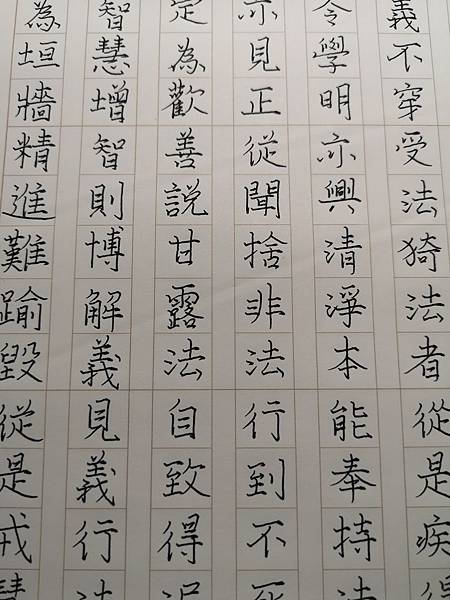 義不穿受法猗法者從是疾得
令學明亦興清淨本能奉持法
亦見正從聞捨非法行到不死
定為歡善說甘露法自致得泥
智慧增智則博解義見義行法
為垣牆精進難踰毀從是戒慧